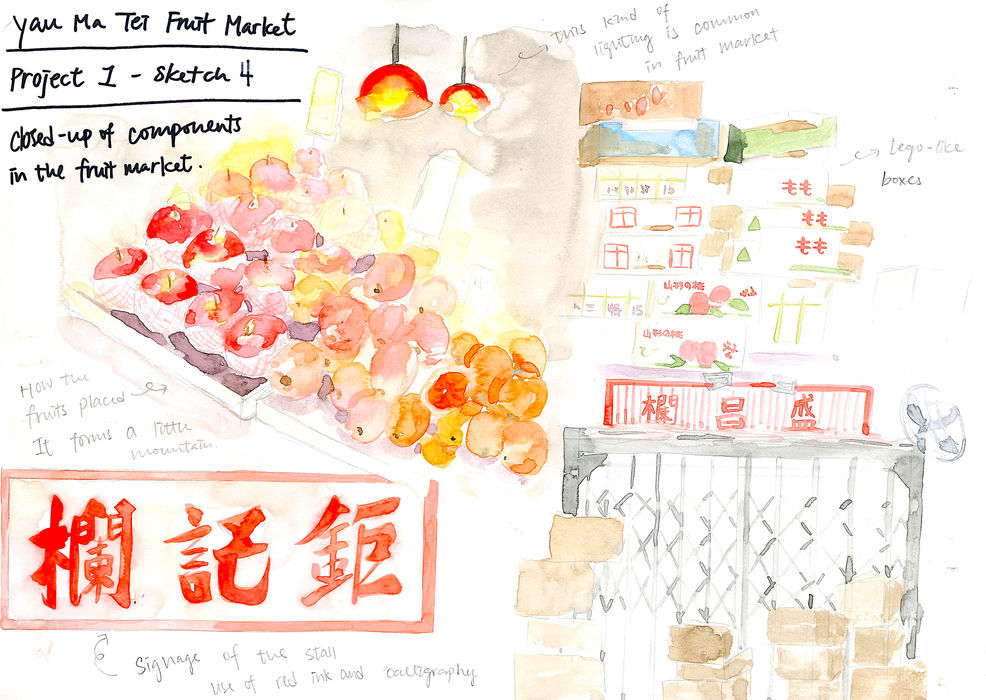 Yau Ma Tei Fruit Market
Project 1 - Sketch 4
closed-up of components
in the fruit market.
this kind of
lighting is common
in fruit market
Lego-like
boxes
もも
もも
もも
山形の桃
山形の桃
盛昌欄
How the
fruits placed
It forms a little
mountain.
鉅記欄
Signage of the stall
use of red ink and calligraphy.